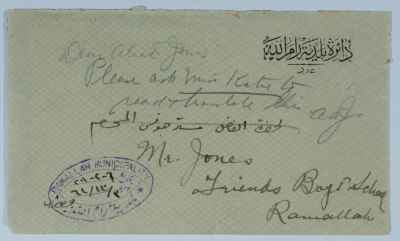 دائرة بلدية رام الله
عدد
Dear Alice Jones
Please ask Miss Katie to
read & translate this
حضرة الفاضل مستر جونس المحترم
Mr. Jones
Friends Boys School
Ramallah
RAMALLAH MUNICIPALITY